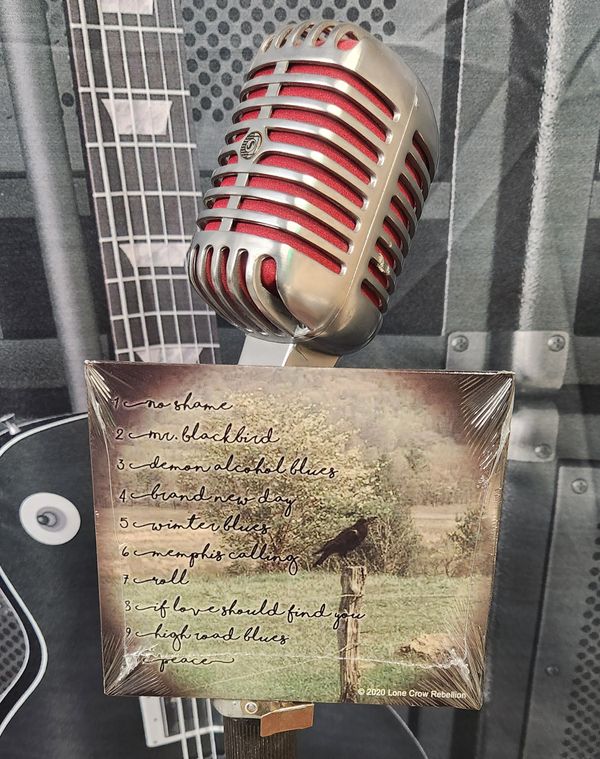 1 no shame
2 mr. blackbird
3 demon alcohol blues
4 brand new day
5 winter blues
6 memphis calling
7 roll
8 if love should find you
9 high road blues
peace
© 2020 Lone Crow Rebellion